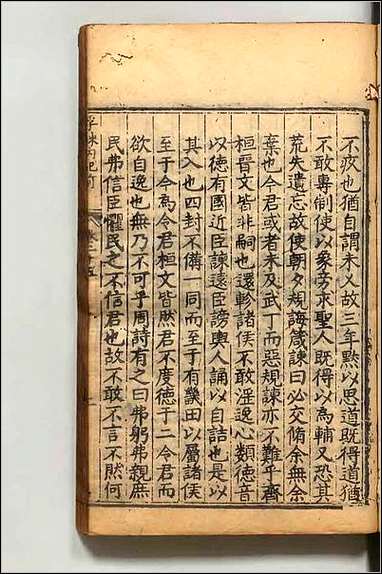 不疚也猶自謂未乂故三年默以思道既得道猶
不敢專制使以象旁求聖人既得以為輔又恐其
荒失遺忘故使朝夕規誨箴諫曰必交脩余無余
棄也今君或者未及武丁而惡規諫亦不難乎齊
桓晉文皆非嗣也還軫諸侯不敢淫逸心類德音
以德有國近臣諫遠臣謗輿人誦以自誥也是以
其入也四封不備一同而至于有畿田以屬諸侯
至于今為令君桓文皆然君不度德于二令君而
欲自逸也無乃不可乎周詩有之曰弗躬弗親庶
民弗信臣懼民之不信君也故不敢不言不然何